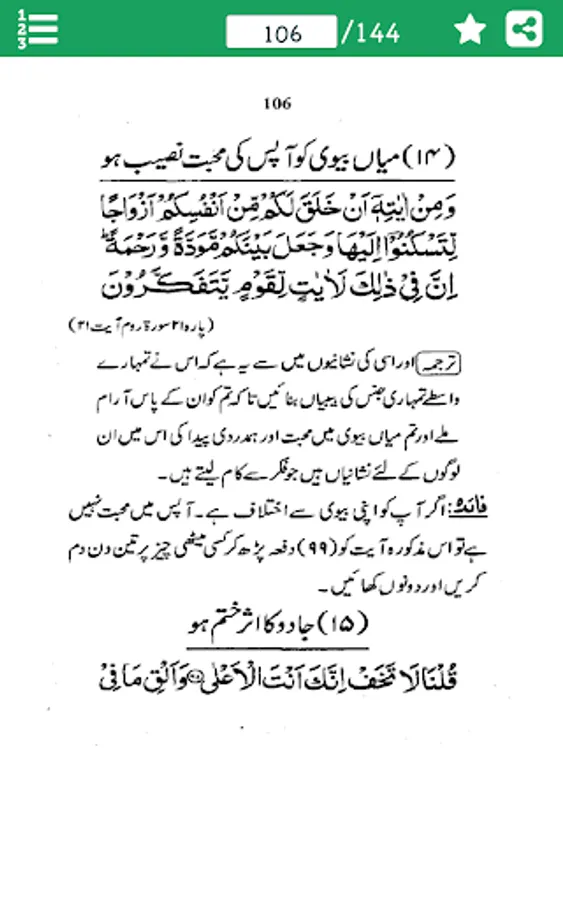 1
2
3
106 /144
106
(۱۴) میاں بیوی کو آپس کی محبت نصیب ہو
وَمِنْ اٰيٰتِهٖۤ اَنْ خَلَقَ لَكُمْ مِّنْ اَنْفُسِكُمْ اَزْوَاجًا
لِّتَسْكُنُوْۤا اِلَيْهَا وَجَعَلَ بَيْنَكُمْ مَّوَدَّةً وَّرَحْمَةً ؕ
اِنَّ فِيْ ذٰلِكَ لَاٰيٰتٍ لِّقَوْمٍ يَّتَفَكَّرُوْنَ
(پارہ ۲۱ سورۃ روم آیت ۲۱)
ترجمہ اور اسی کی نشانیوں میں سے یہ ہے کہ اس نے تمہارے
واسطے تمہاری جنس کی بیبیاں بنائیں تاکہ تم کو ان کے پاس آرام
ملے اور تم میاں بیوی میں محبت اور ہمدردی پیدا کی اس میں ان
لوگوں کے لئے نشانیاں ہیں جو فکر سے کام لیتے ہیں۔
فائدہ: اگر آپ کو اپنی بیوی سے اختلاف ہے۔ آپس میں محبت نہیں
ہے تو اس مذکورہ آیت کو (۹۹) دفعہ پڑھ کر کسی میٹھی چیز پر تین دن دم
کریں اور دونوں کھائیں۔
(۱۵) جادو کا اثر ختم ہو
قُلْنَا لَا تَخَفْ اِنَّكَ اَنْتَ الْاَعْلٰى ۶۸ وَاَلْقِ مَا فِيْ